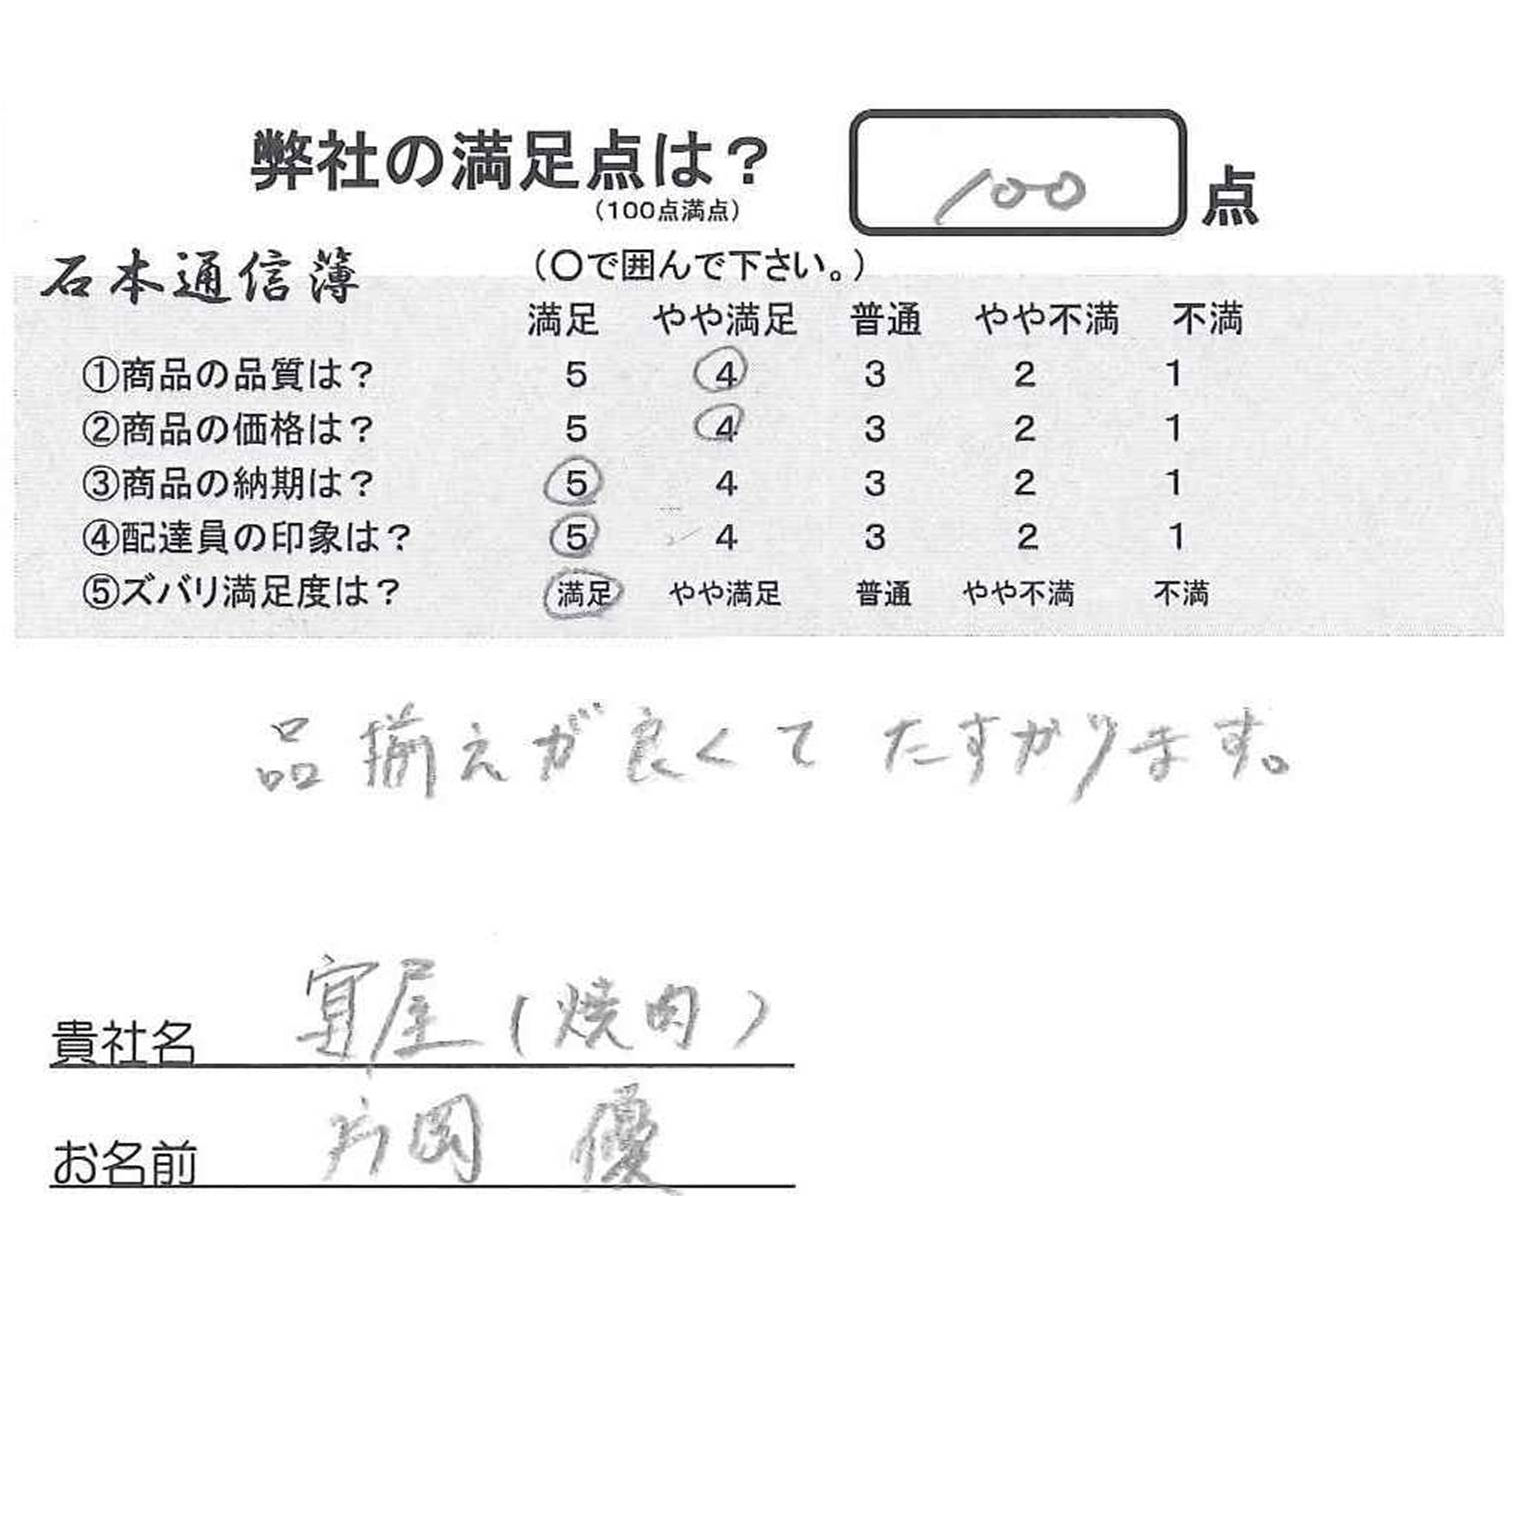 弊社の満足点は? 100 点
(100点満点)
石本通信簿 (〇で囲んで下さい。)
満足 やや満足 普通 やや不満 不満
①商品の品質は? 5 4 3 2 1
②商品の価格は? 5 4 3 2 1
③商品の納期は? 5 4 3 2 1
④配達員の印象は? 5 4 3 2 1
⑤ズバリ満足度は? 満足 やや満足 普通 やや不満 不満
品揃えが良くて たすかります。
貴社名 屋(焼肉)
お名前 片岡 優